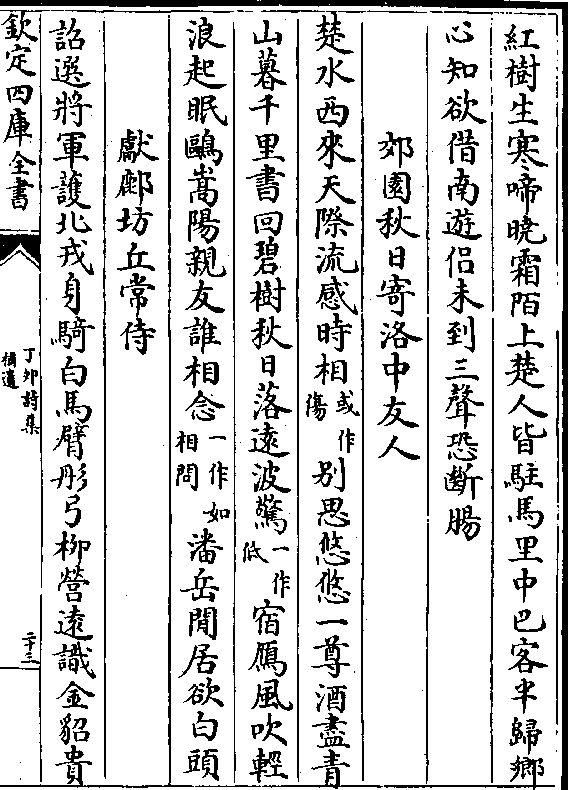 紅樹生寒啼曉霜陌上楚人皆駐馬里中巴客半歸鄉
心知欲借南遊侶未到三聲恐斷腸
郊園秋日寄洛中友人
楚水西來天際流感時相或作傷別思悠悠一尊酒盡青
山暮千里書回碧樹秋日落遠波驚一作低宿鴈風吹輕
浪起眠鷗嵩陽親友誰相念一作如相問潘岳閒居欲白頭
獻鄜坊丘常侍
詔選將軍護北戎身騎白馬臂彤弓柳營遠識金貂貴
欽定四庫全書
丁卯詩集
補遺
二十三